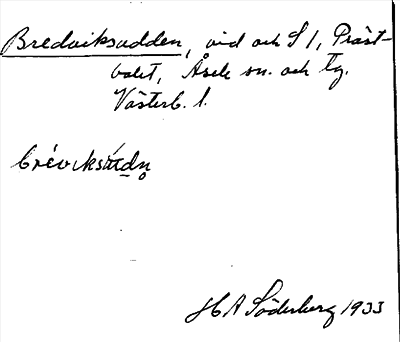 Bredviksudden, vid och S 1, Präst-
bolet, Åsele sn. och tg.
Västerb. l.
bréviksúdn̥
H A Söderberg 1933